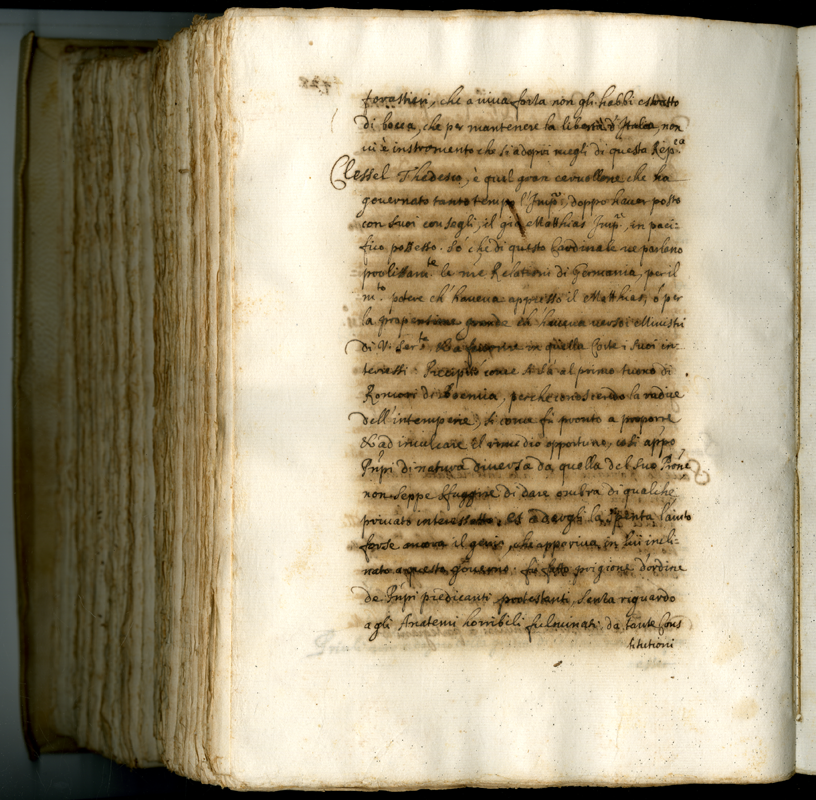 forastieri, che a viva forza non gli habbi estratto
di bocca, che per mantenere la libertà d'Italia, non
vi è instromento che si adopri meglio di questa Rep.ca
Clessel Thedesco, è quel gran cervellone che ha
governato tanto tempo l'Imp.i, doppo haver posto
con suoi consegli, il già Matthias Imp.r, in paci-
fico possesso. Sò che di questo Cardinale ne parlano
prolissam.te le me Relationi di Germania, per il
m.to potere ch'haveva appresso il Matthias, ò per
la propensione grande ch'haveva verso i Ministri
di V. Ser.tà, in quella Corte i suoi in-
teressi. Precipitò come al primo tuono di
Romori di Boemia, perche conoscendo la radice
dell'intemperie, si come fù pronto a proporre
& ad inculcare il rimedio opportuno, così appo
Prñpi di natura diversa da quella del suo Prone
non seppe sfuggire di dare ombra di qualche
privato interessotto. Et a dargli la spenta l'aiutò
forse ancora il genio, che appariva in lui incli-
nato a questo governo. fù fatto prigione d'ordine
de Prñpi predicanti, protestanti, senza riguardo
agli Anatemi horribili fulminati da tante Cons
titutioni